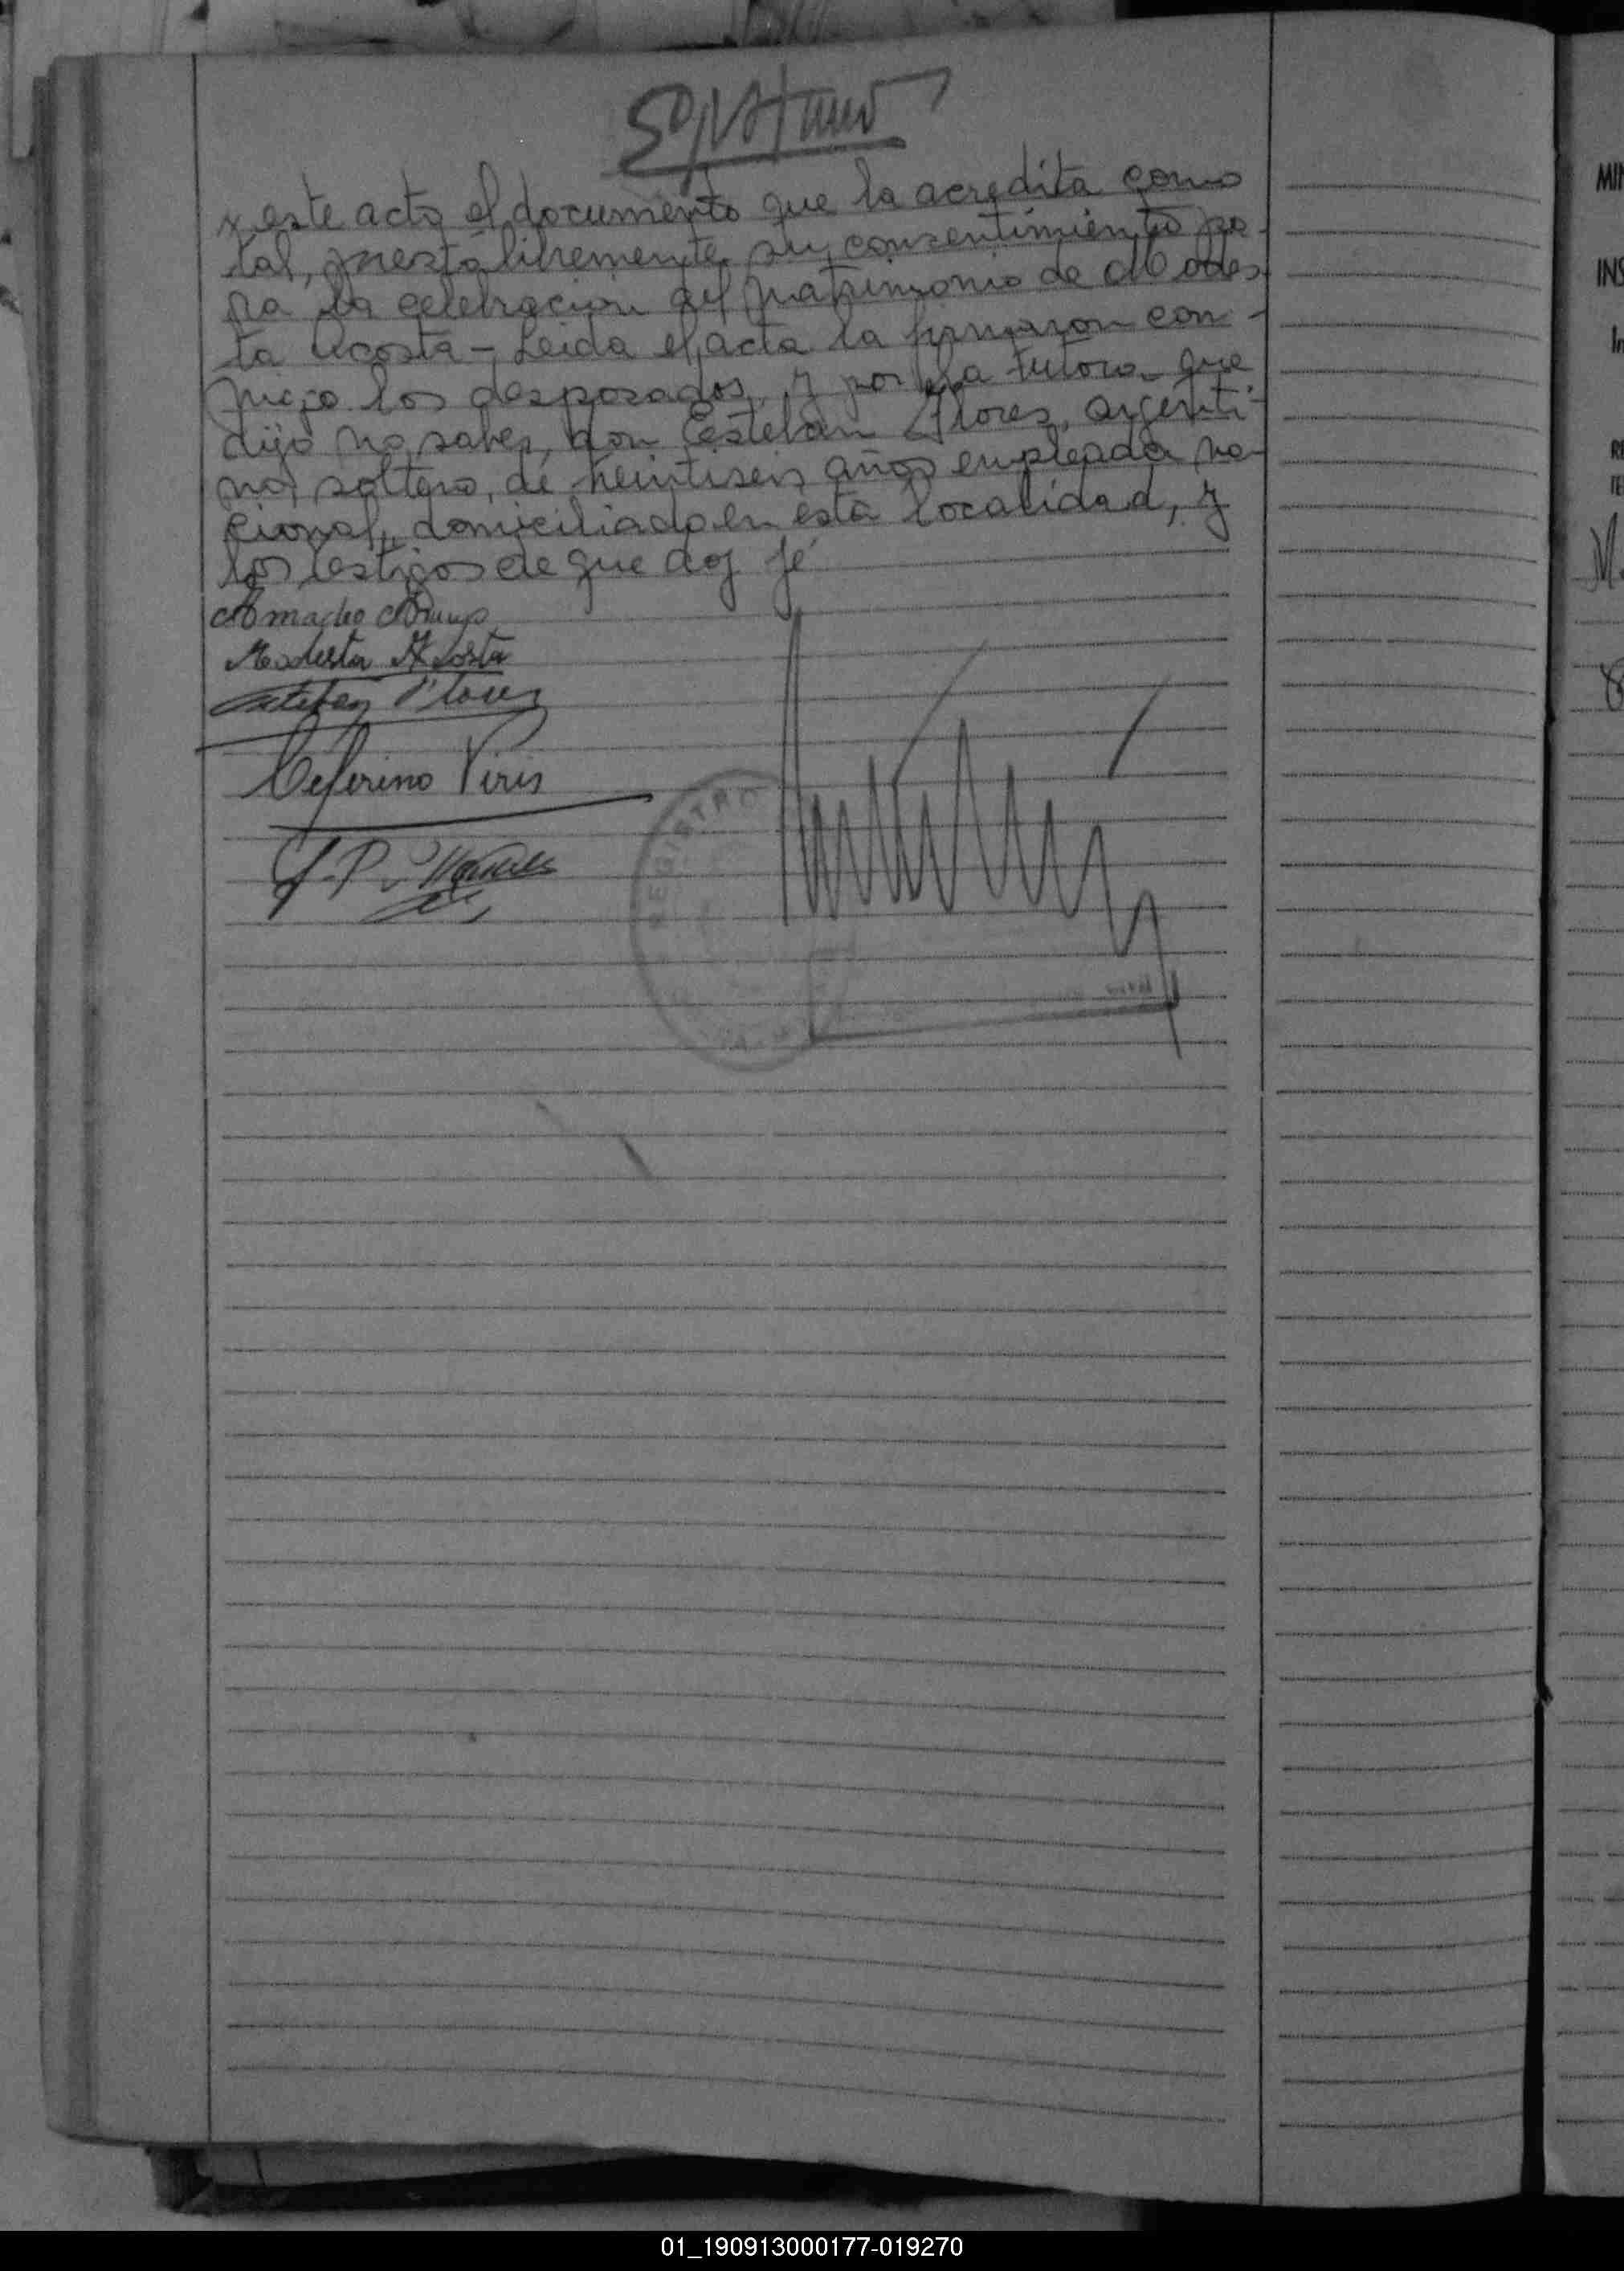 y este acto el documento que la acredita como
tal, prestó libremente su consentimiento pa-
ra la celebración del matrimonio de Modes
ta Acosta - Leida el acta la firmaron con-
migo los desposados, y por la tutora que
dijo no saber, don Esteban Flores, argenti-
no, soltero, de veintiseis años empleado na-
cional, domiciliado en esta localidad, y
los testigos de que doy fé
Modesta Acosta
Esteban Flores
Ceferino Piris
REGISTRO
MIN
INS
In
RE
TE
01_190913000177-019270